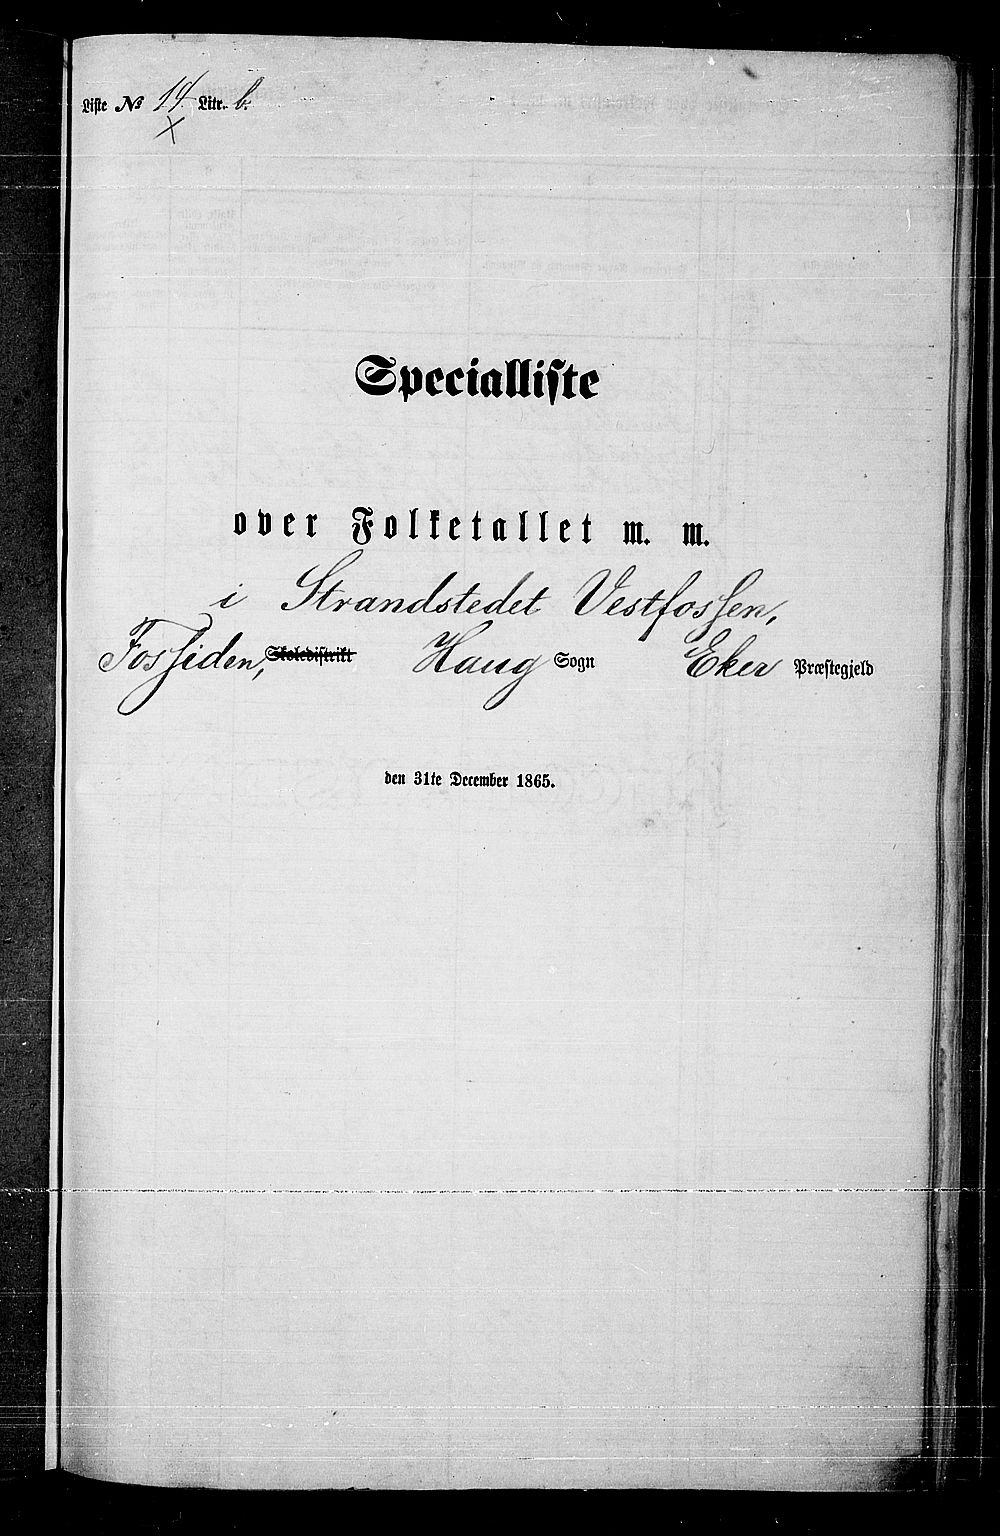 Liste № 14. Litr. b.
Specialliste
over Folketallet m. m.
i Strandstedet Vestfossen,
Fossiden, Skoledistrikt Haug Sogn Eker Præstegjeld
den 31te December 1865.